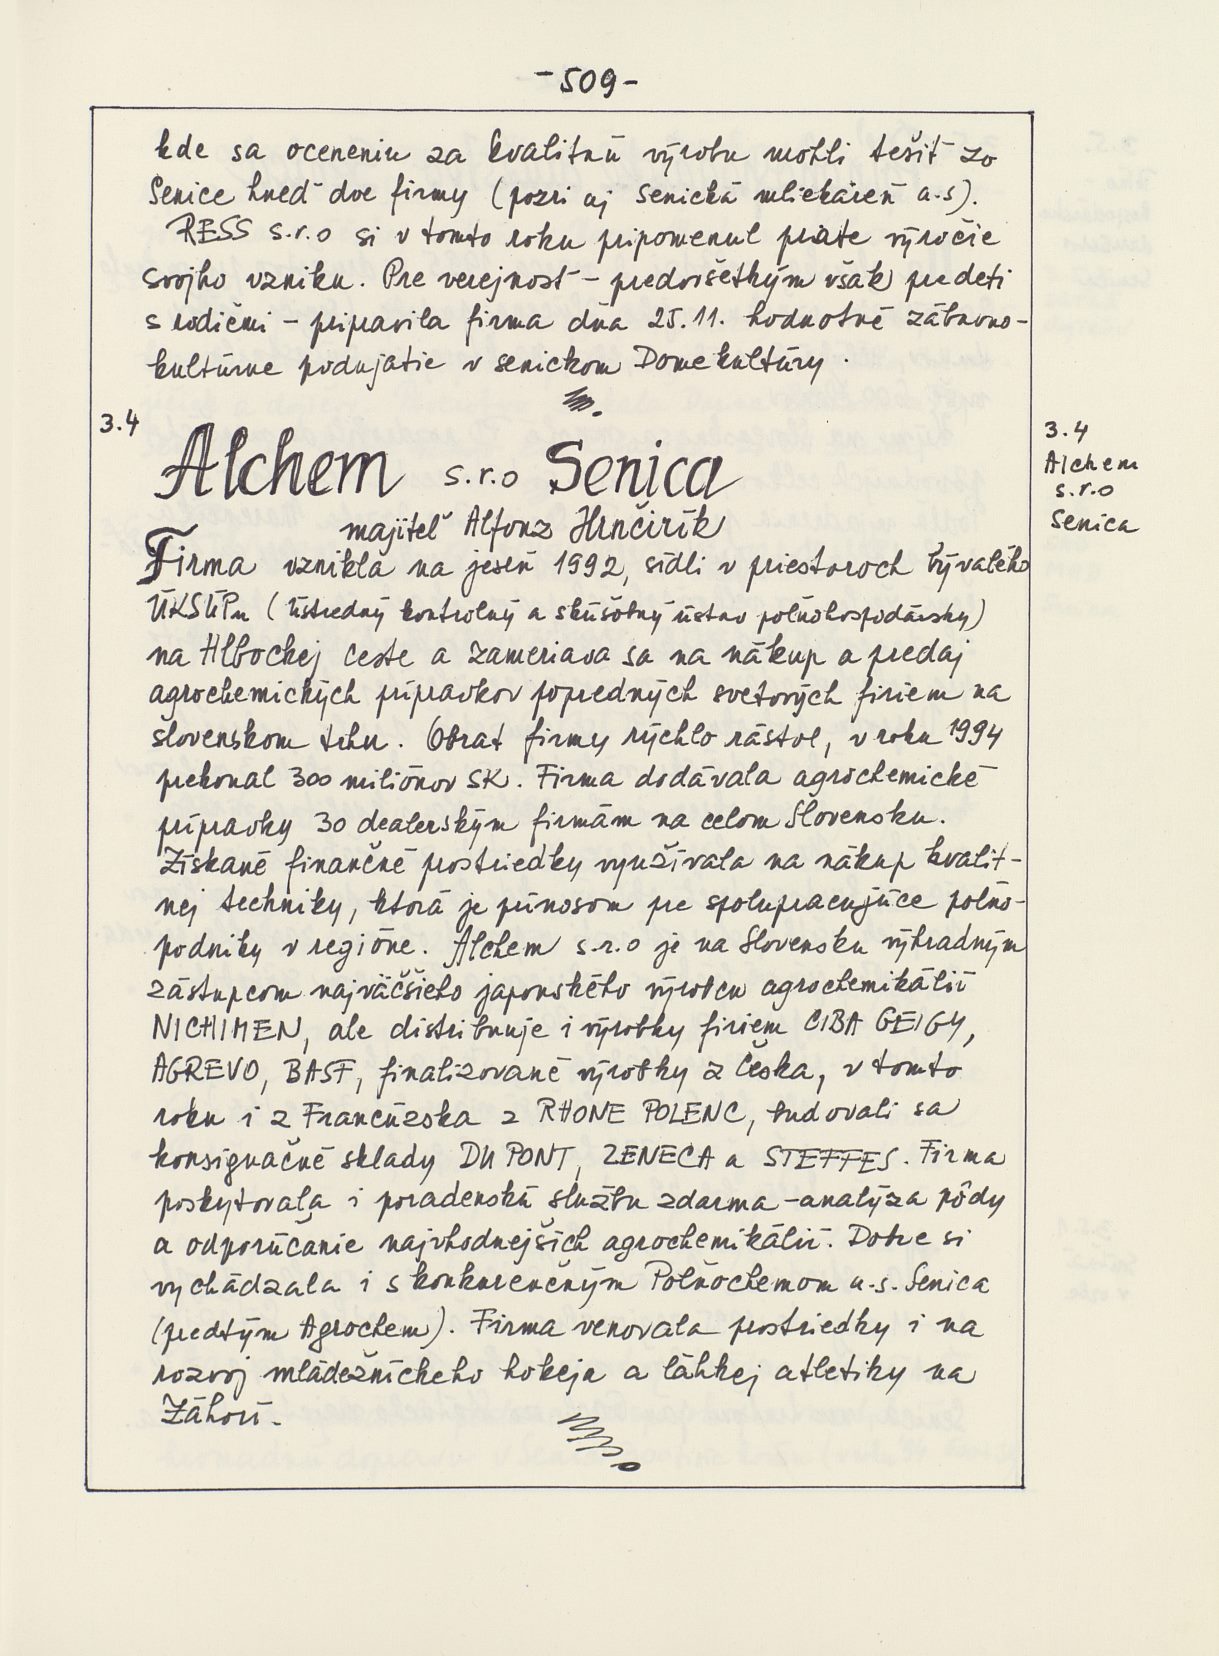 -509-
kde sa oceneniu za kvalitnú výrobu mohli tešiť zo
Senice hneď dve firmy (pozri aj Senická mliekáreň a.s).
RESS s.r.o si v tomto roku pripomenul piate výročie
svojho vzniku. Pre verejnosť - predovšetkým však pre deti
s rodičmi - pripravila firma dňa 25.11. hodnotné zábavno-
kultúrne podujatie v senickom Dome kultúry.
3.4
Alchem s.r.o Senica
majiteľ Alfonz Hrnčirík
3.4
Alchem
s.r.o
Senica
Firma vznikla na jeseň 1992, sídli v priestoroch bývalého
ÚKSÚPu (ústredný kontrolný a skúšobný ústav poľnohospodársky)
na Hlbockej ceste a zameriava sa na nákup a predaj
agrochemických prípravkov popredných svetových firiem na
slovenskom trhu. Obrat firmy rýchlo rástol, v roku 1994
prekonal 300 miliónov SK. Firma dodávala agrochemické
prípravky 30 dealerským firmám na celom Slovensku.
Získané finančné prostriedky využívala na nákup kvalit-
nej techniky, ktorá je prínosom pre spolupracujúce poľno-
podniky v regióne. Alchem s.r.o je na Slovensku výhradným
zástupcom najväčšieho japonského výrobcu agrochemikálií
NICHIMEN, ale distribuuje i výrobky firiem CIBA GEIGY,
AGREVO, BASF, finalizované výrobky z Česka, v tomto
roku i z Francúzska z RHONE POLENC, budovali sa
konsignačné sklady DU PONT, ZENECA a STEFFES. Firma
poskytovala i poradenskú službu zdarma - analýza pôdy
a odporúčanie najvhodnejších agrochemikálií. Dobre si
vychádzala i s konkurenčným Poľnochemom a.s. Senica
(predtým Agrochem). Firma venovala prostriedky i na
rozvoj mládežníckeho hokeja a ľahkej atletiky na
Záhorí.